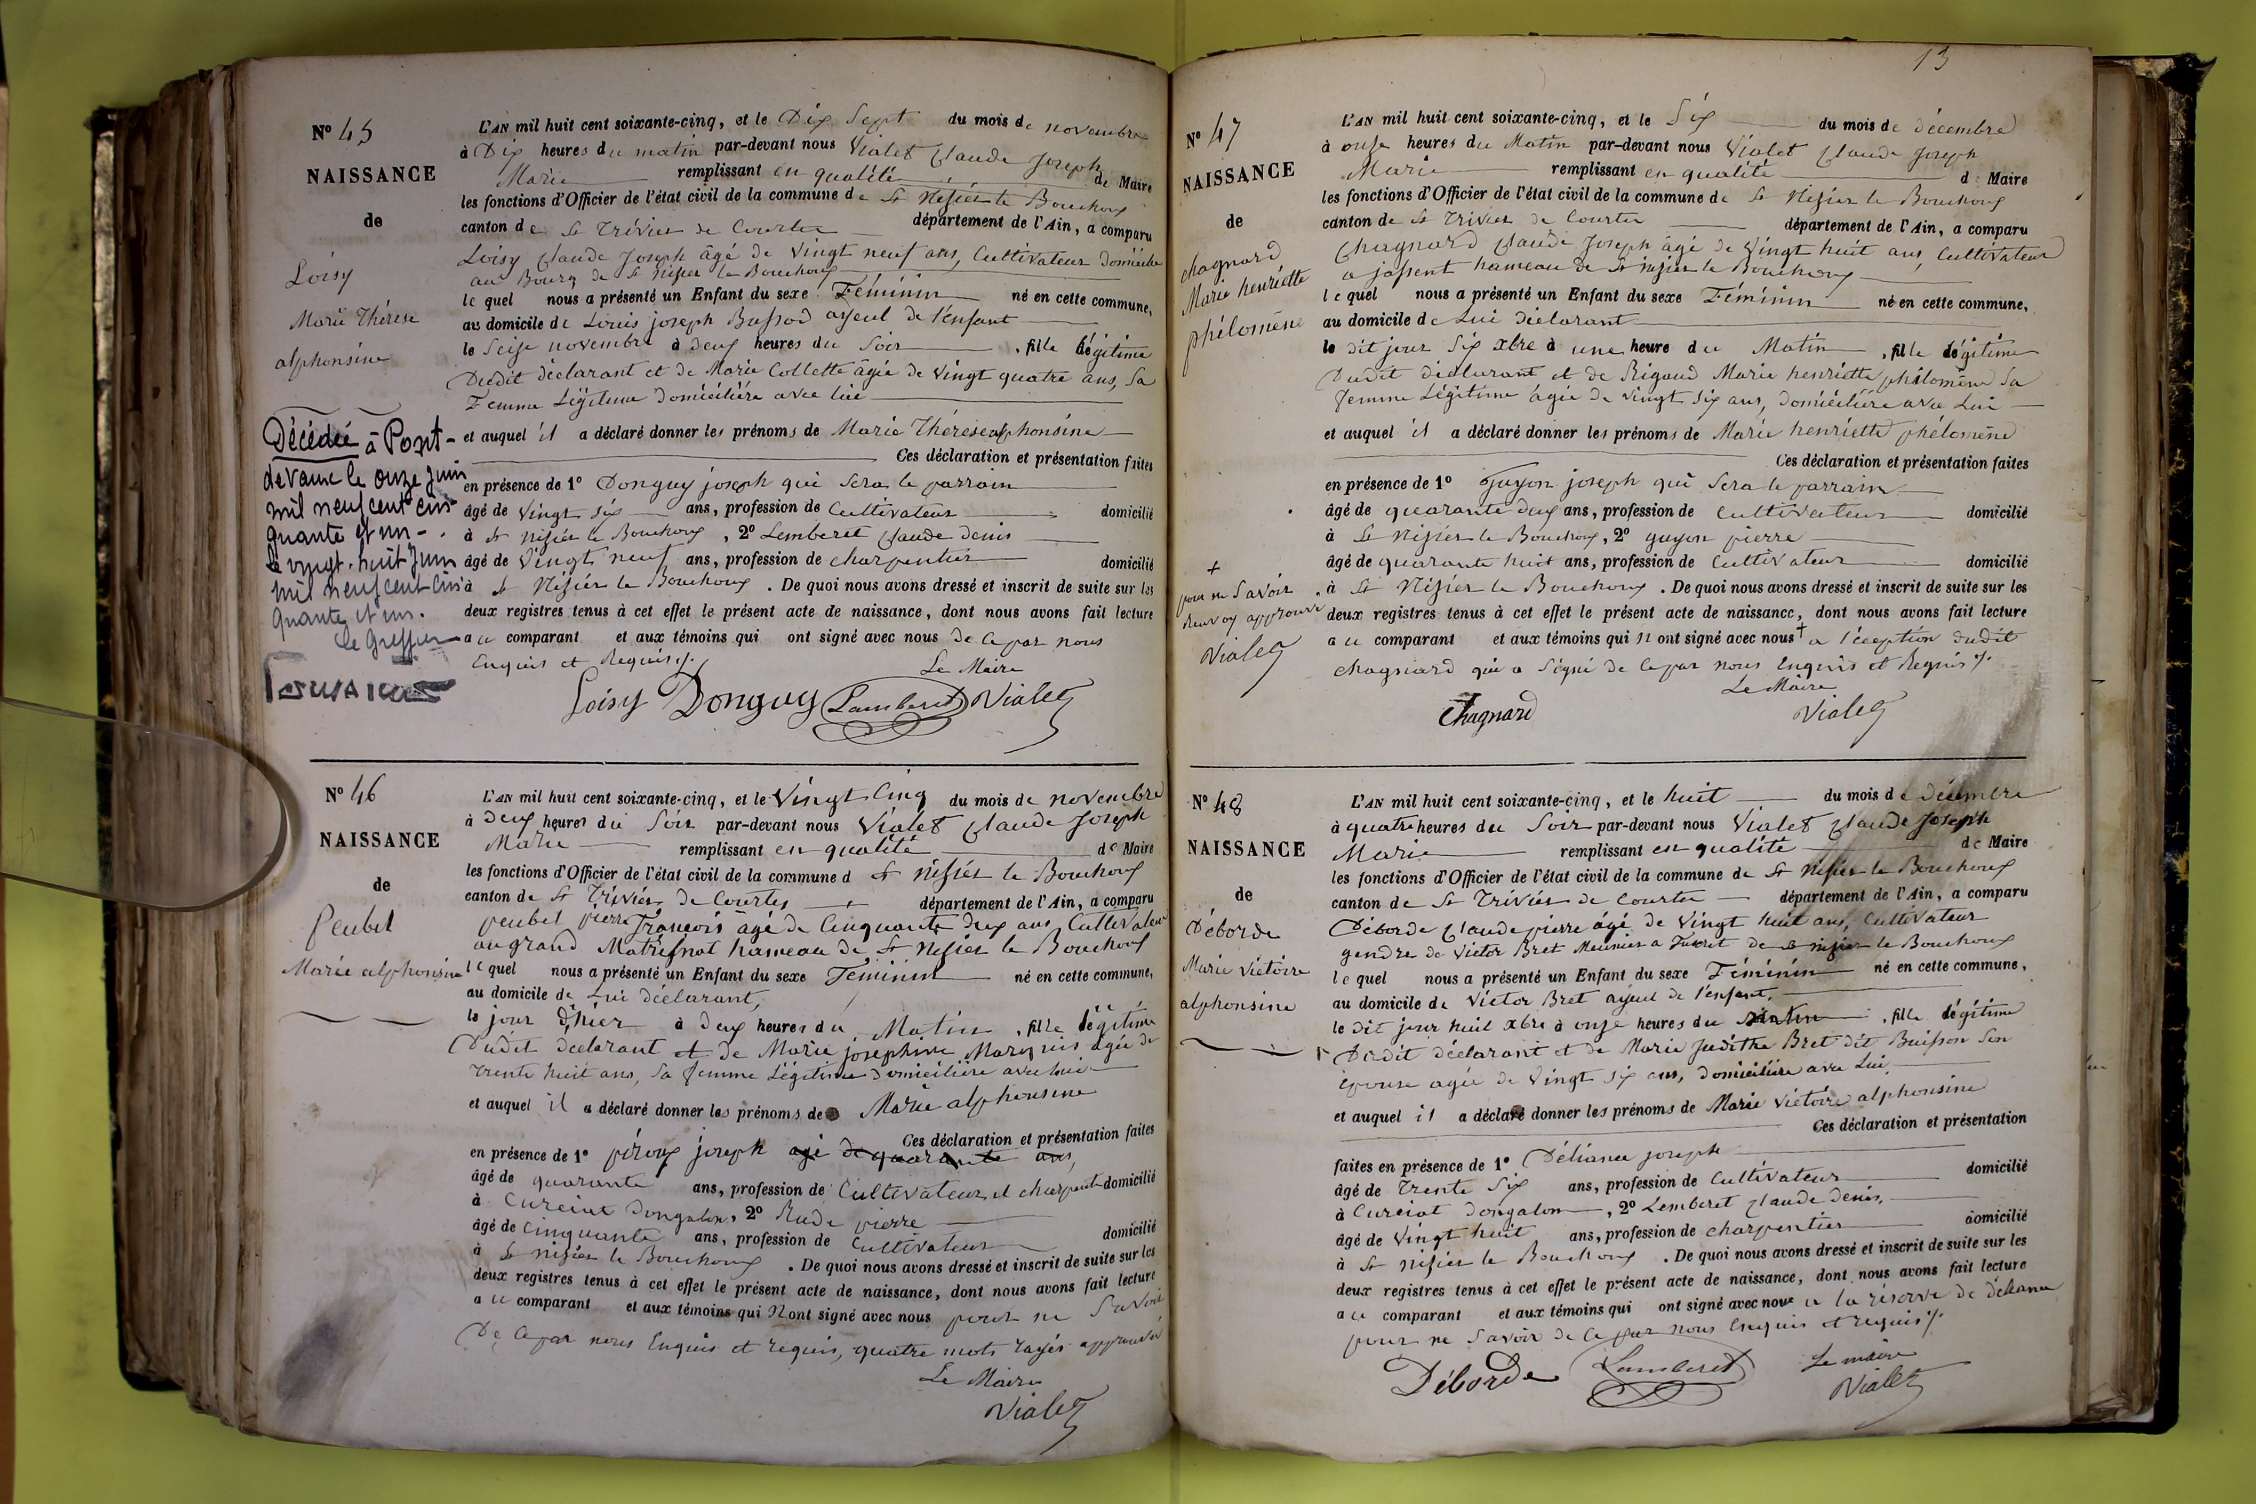 Nº 45
NAISSANCE
de
Loisy
Marie Thérèse
alphonsine
Décédée à Pont-
devaux le onze Juin
mil neuf cent cin
quante et un -.
Le vingt-huit Juin
mil neuf cent cin
quante et un.
Le Greffier
L'AN mil huit cent soixante-cinq, et le Dix Sept du mois de novembre
à Dix heures du matin par-devant nous Vialet Claude Joseph
Marie remplissant en qualité de Maire
les fonctions d'Officier de l'état civil de la commune de St Nisier le Bouchoux
canton de St Trivier de Courtes département de l'Ain, a comparu
Loisy Claude Joseph âgé de vingt neuf ans, Cultivateur domicilié
au Bourg de St Nisier le Bouchoux
lequel nous a présenté un Enfant du sexe Féminin né en cette commune,
au domicile de Louis joseph Bassod ayeul de l'enfant
le Seize novembre à deux heures du Soir, fille légitime
Dudit déclarant et de Marie Collette âgée de vingt quatre ans, Sa
Femme Légitime domiciliére avec lui
et auquel il a déclaré donner les prénoms de Marie Thérèse alphonsine
Ces déclaration et présentation faites
en présence de 1º Donguy joseph qui Sera le parrain
âgé de vingt Six ans, profession de Cultivateur domicilié
à St nisier le Bouchoux, 2º Lemberet Claude denis
âgé de Vingt neuf ans, profession de charpentier domicilié
à St Nisier le Bouchoux. De quoi nous avons dressé et inscrit de suite sur les
deux registres tenus à cet effet le présent acte de naissance, dont nous avons fait lecture
a ce comparant et aux témoins qui ont signé avec nous de ce par nous
Enquis et Requis ./.
Le Maire
Loisy Donguy Lamberet Vialet
Nº 46
NAISSANCE
de
Peubet
Marie alphonsine
L'AN mil huit cent soixante-cinq, et le Vingt Cinq du mois de novembre
à deux heures du Soir par-devant nous Vialet Claude Joseph
Marie remplissant en qualité de Maire
les fonctions d'Officier de l'état civil de la commune d St nisier le Bouchoux
canton de St Trivier de Courtes département de l'Ain, a comparu
peubet pierre François âgé de Cinquante deux ans Cultivateur
au grand Matrefnat hameau de St Nisier le Bouchoux
lequel nous a présenté un Enfant du sexe Féminin né en cette commune,
au domicile de Lui déclarant,
le jour d'hier à deux heures du Matin, fille légitime
Dudit déclarant et de Marie josephine Marquis âgée de
trente huit ans, Sa femme Légitime domiciliére avec lui
et auquel il a déclaré donner les prénoms de Marie alphonsine
Ces déclaration et présentation faites
en présence de 1º péroux joseph agé de quarante ans,
âgé de quarante ans, profession de Cultivateur et charpent domicilié
à Curciat dongalon, 2º Rude pierre
âgé de Cinquante ans, profession de Cultivateur domicilié
à St nisier le Bouchoux. De quoi nous avons dressé et inscrit de suite sur les
deux registres tenus à cet effet le présent acte de naissance, dont nous avons fait lecture
a ce comparant et aux témoins qui n ont signé avec nous pour ne Savoir
De ce par nous Enquis et requis, quatre mots rayés approuvé
Le Maire
Vialet
13
Nº 47
NAISSANCE
de
chagnard
Marie henriette
phélomène
+
pour ne Savoir
Renvoy approuvé
Vialet
L'AN mil huit cent soixante-cinq, et le Six du mois de décembre
à onze heures du Matin par-devant nous Vialet Claude Joseph
Marie remplissant en qualité d Maire
les fonctions d'Officier de l'état civil de la commune de St Nisier le Bouchoux
canton de St Trivier de Courtes département de l'Ain, a comparu
Chagnard Claude Joseph âgé de Vingt huit ans, Cultivateur
a jassent hameau de St nisier le Bouchoux
lequel nous a présenté un Enfant du sexe Féminin né en cette commune,
au domicile de Lui déclarant
le dit jour Six xbre à une heure du Matin, fille légitime
Dudit déclarant et de Rigaud Marie henriette phélomène Sa
femme Légitime âgée de vingt Six ans, domiciliére avec Lui
et auquel il a déclaré donner les prénoms de Marie henriette phélomène
Ces déclaration et présentation faites
en présence de 1º Guyon joseph qui Sera le parrain
âgé de quarante deux ans, profession de Cultivateur domicilié
à St Nisier le Bouchoux, 2º guyon pierre
âgé de quarante huit ans, profession de Cultivateur domicilié
à St Nisier le Bouchoux. De quoi nous avons dressé et inscrit de suite sur les
deux registres tenus à cet effet le présent acte de naissance, dont nous avons fait lecture
a ce comparant et aux témoins qui n ont signé avec nous + a l'éception dudit
chagnard qui a Signé de Ce par nous Enquis et Requis ./.
Le Maire
Chagnard Vialet
Nº 48
NAISSANCE
de
Déborde
Marie victoire
alphonsine
L'AN mil huit cent soixante-cinq, et le huit du mois de décembre
à quatre heures du Soir par-devant nous Vialet Claude Joseph
Marie remplissant en qualité de Maire
les fonctions d'Officier de l'état civil de la commune de St Nisier le Bouchoux
canton de St Trivier de Courtes département de l'Ain, a comparu
Déborde Claude pierre âgé de Vingt huit ans, Cultivateur
gendre de Victor Bret Meunier a de St nisier le Bouchoux
lequel nous a présenté un Enfant du sexe Féminin né en cette commune,
au domicile de Victor Bret ayeul de l'enfant,
le dit jour huit xbre à onze heures du Matin, fille légitime
Dudit déclarant et de Marie Judithe Bret dit Buisson Son
épouse agée de Vingt Six ans, domiciliére avec Lui,
et auquel il a déclaré donner les prénoms de Marie victoire alphonsine
Ces déclaration et présentation
faites en présence de 1º Déliance joseph
âgé de Trente Six ans, profession de Cultivateur domicilié
à Curciat dongalon, 2º Lemberet Claude denis,
âgé de Vingt huit ans, profession de charpentier domicilié
à St nisier le Bouchoux. De quoi nous avons dressé et inscrit de suite sur les
deux registres tenus à cet effet le présent acte de naissance, dont nous avons fait lecture
a ce comparant et aux témoins qui ont signé avec nous a la réserve de déliance
pour ne Savoir de Ce par nous Enquis et requis ./.
Déborde Lamberet Le maire
Vialet